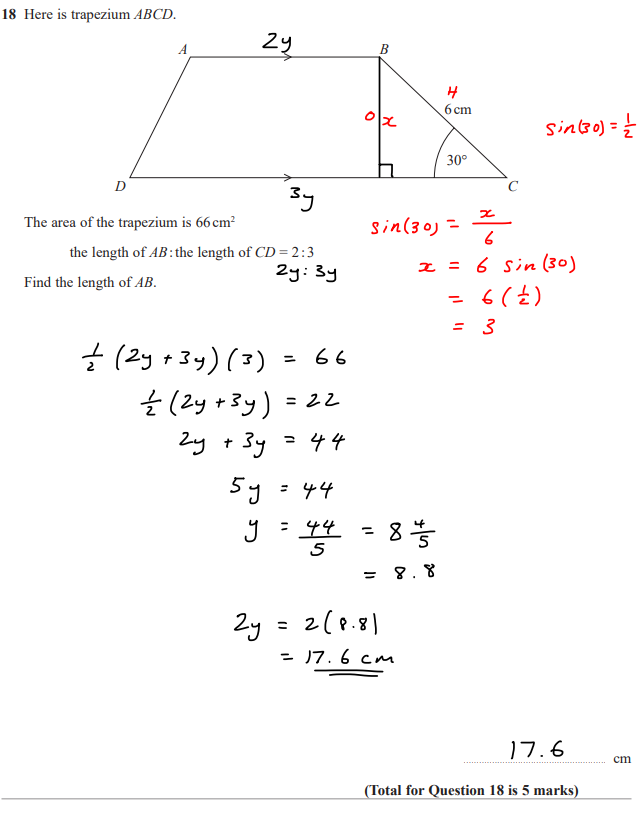 18 Here is trapezium ABCD.
2y
A
B
H
6 cm
O x
sin(30) = 1/2
30°
D
3y
C
The area of the trapezium is 66 cm²
the length of AB : the length of CD = 2 : 3
2y : 3y
Find the length of AB.
sin(30) = x/6
x = 6 sin(30)
= 6(1/2)
= 3
1/2 (2y + 3y)(3) = 66
1/2 (2y + 3y) = 22
2y + 3y = 44
5y = 44
y = 44/5 = 8 4/5
= 8.8
2y = 2(8.8)
= 17.6 cm
17.6 cm
(Total for Question 18 is 5 marks)